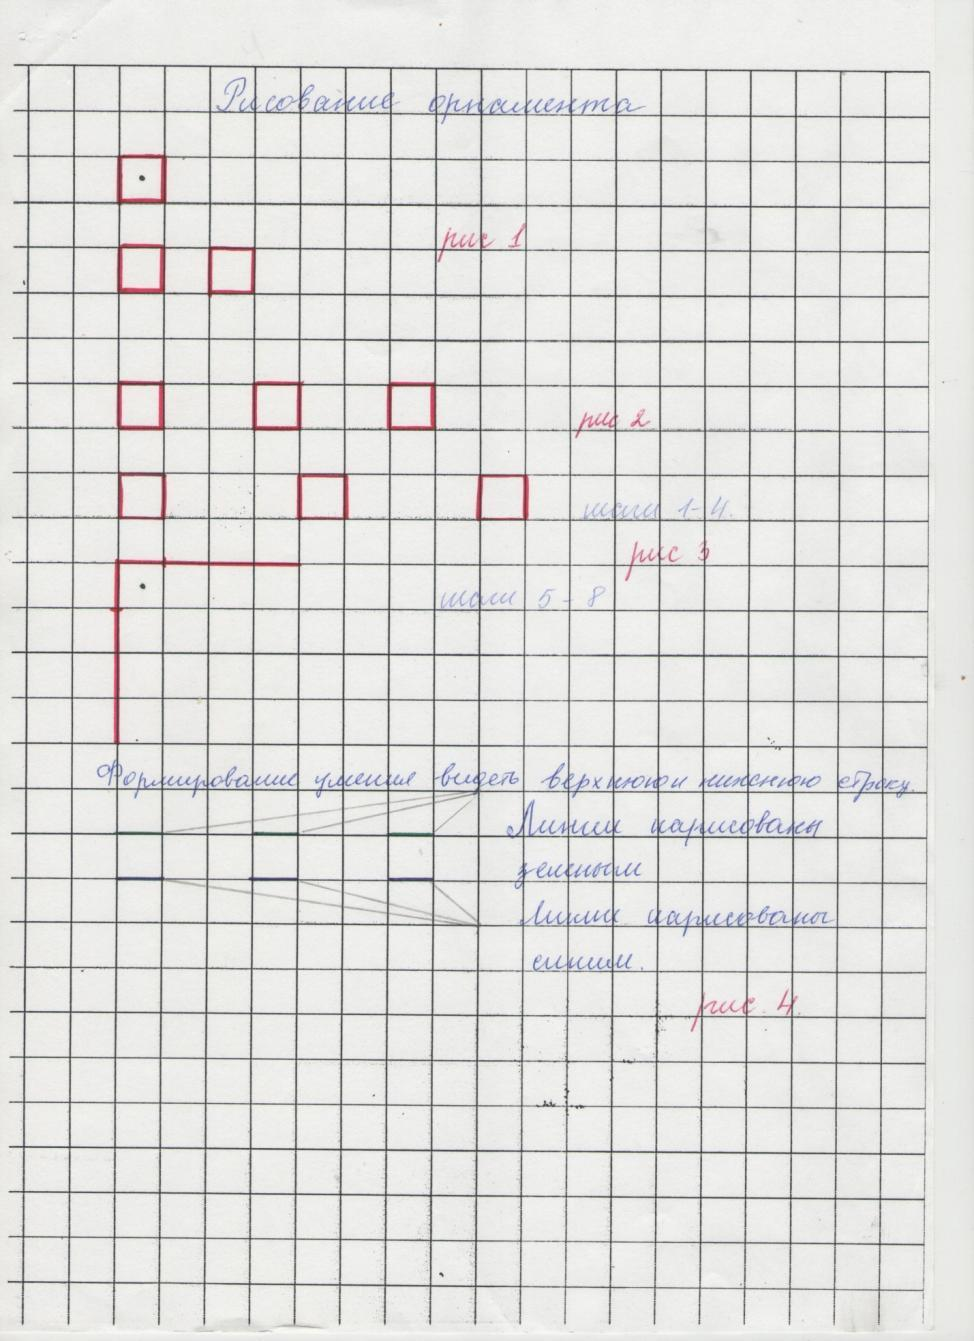 Рисование орнамента
рис 1
рис 2
шаги 1-4.
рис 3
шаги 5-8
Формирование умения видеть верхнюю и нижнюю строку.
Линии нарисованы
зеленым
Линии нарисованы
синим.
рис. 4.